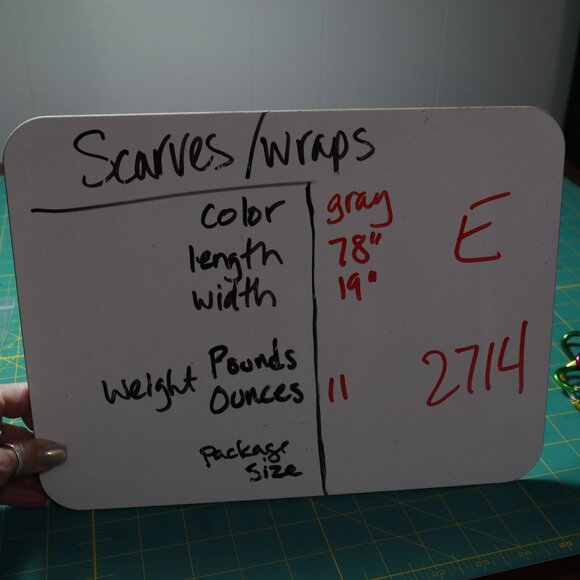 Scarves/wraps
color gray
length 78"
width 19"
E
Pounds
Weight Ounces 11
2714
package
size